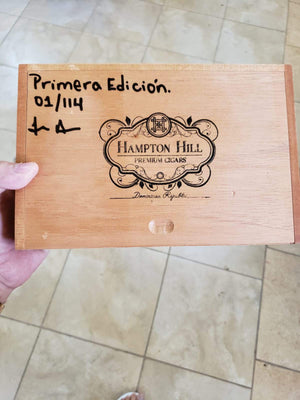 Primera Edición.
01/114
HAMPTON HILL
PREMIUM CIGARS
Dominican Republic